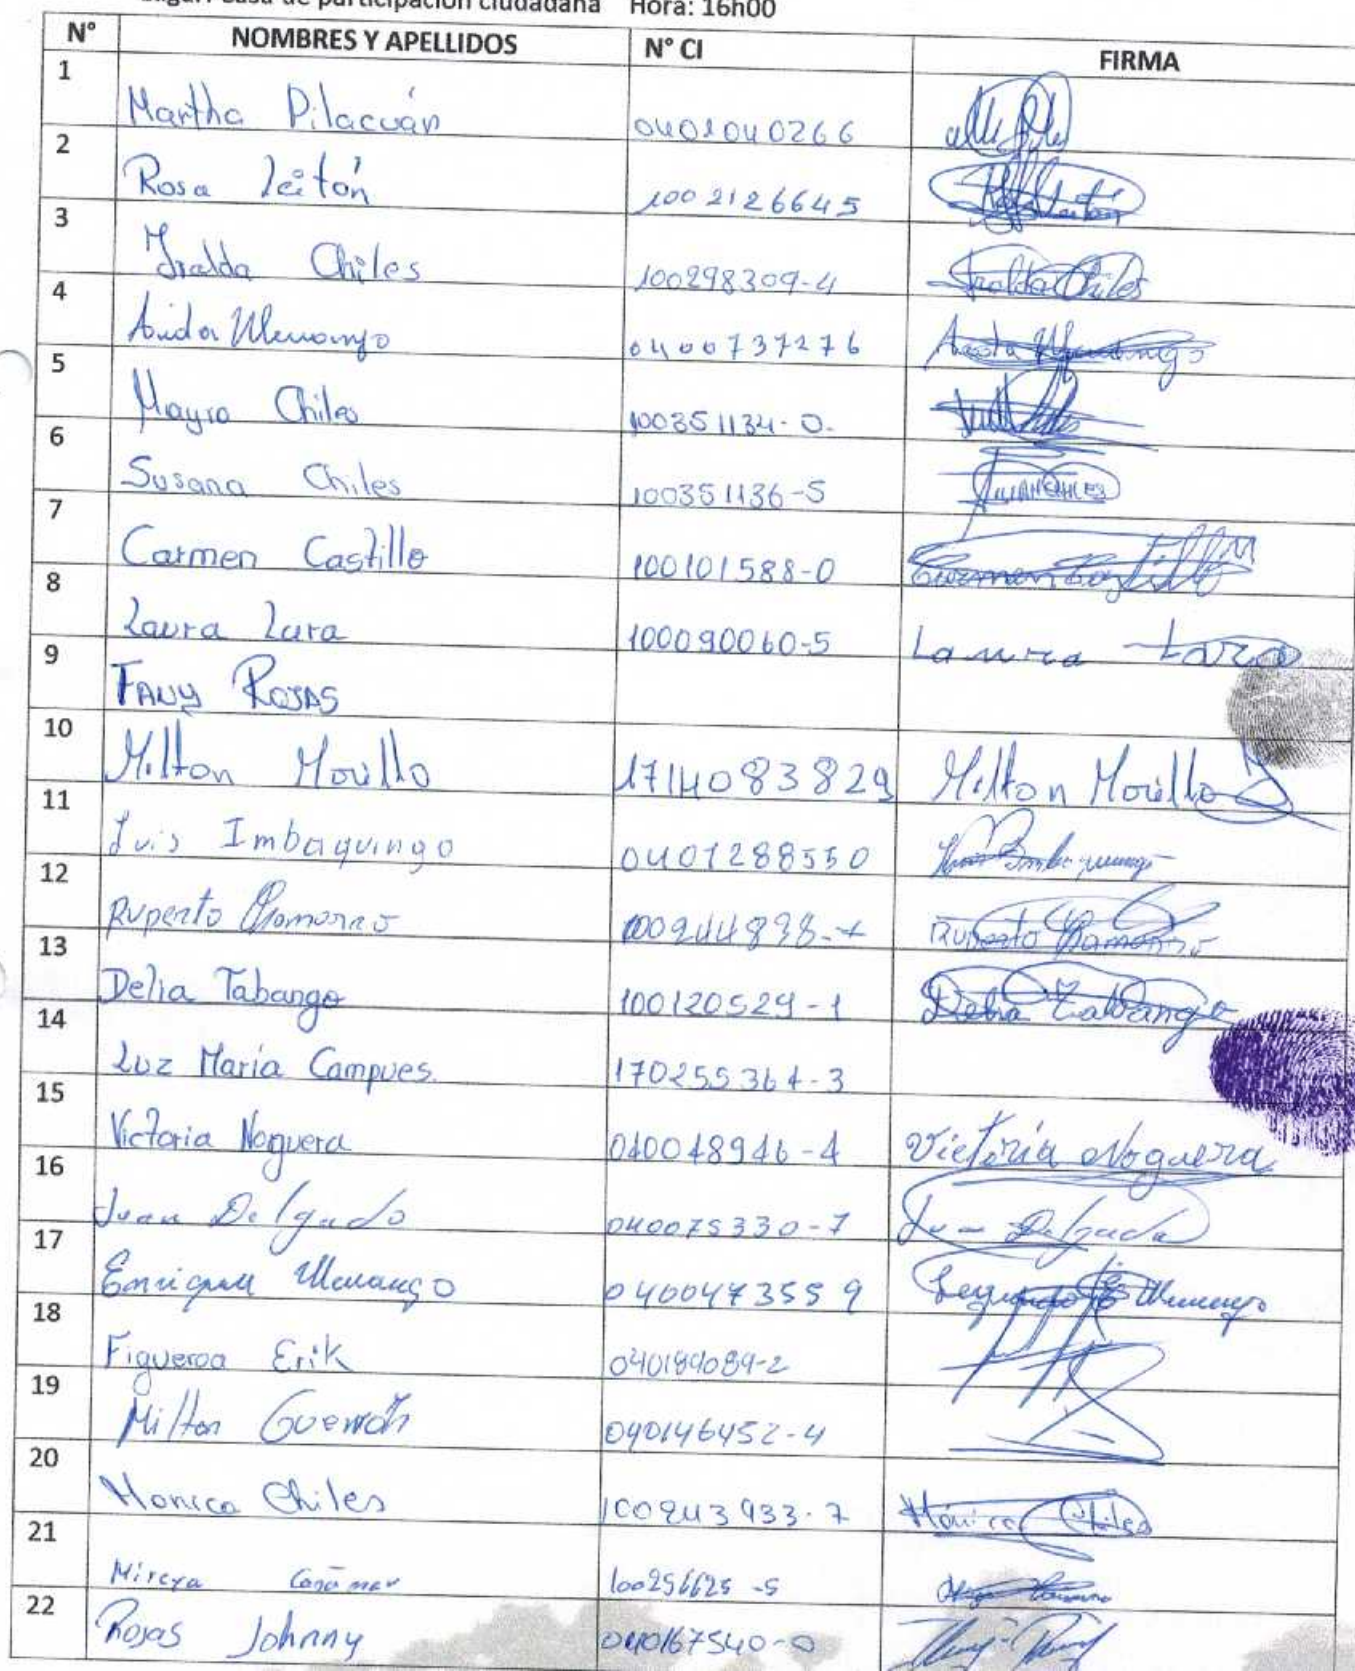 Lugar: Casa de participación ciudadana Hora: 16h00
N° NOMBRES Y APELLIDOS N° CI FIRMA
1 Martha Pilacuán 0401040266
2 Rosa Leitón 1002126645 Rosa Leitón
3 Isalda Chiles 100298309-4 Isalda Chiles
4 Aida Ulcuango 0400737276
5 Mayra Chiles 100351134-0.
6 Susana Chiles 100351136-5 SUSANA CHILES
7 Carmen Castillo 100101588-0 Carmen Castillo M
8 Laura Lara 100090060-5 Laura Lara
9 FANY ROJAS
10 Milton Morillo 1714083829 Milton Morillo
11 Luis Imbaquingo 0401288550 Imbaquingo
12 Ruperto Chamorro 100244898-+ Ruperto Chamorro
13 Delia Tabango 100120529-1 Delia Tabango
14 Luz María Campues. 170255364-3
15 Victoria Noguera 040048946-4 Victoria Noguera
16 Juan Delgado 040075330-7 Juan Delgado
17 Enrique Ulcuango 0400473559 Segundo E Ulcuango
18 Figueroa Erik 040189089-2
19 Milton Guerrón 040146452-4
20 Monica Chiles 100243933-7 Mónica Chiles
21 Mireya 100256625-5
22 Rojas Johnny 040167540-0